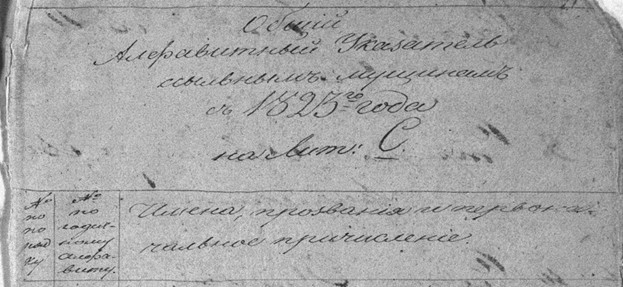 Общій
Алфавитный Указатель
ссыльнымъ мущинамъ
съ 1823го года
на Лит: С.
№ по порядку
№ по годичному алфавиту.
Имена, прозванія и первона-
чальное причисленіе.